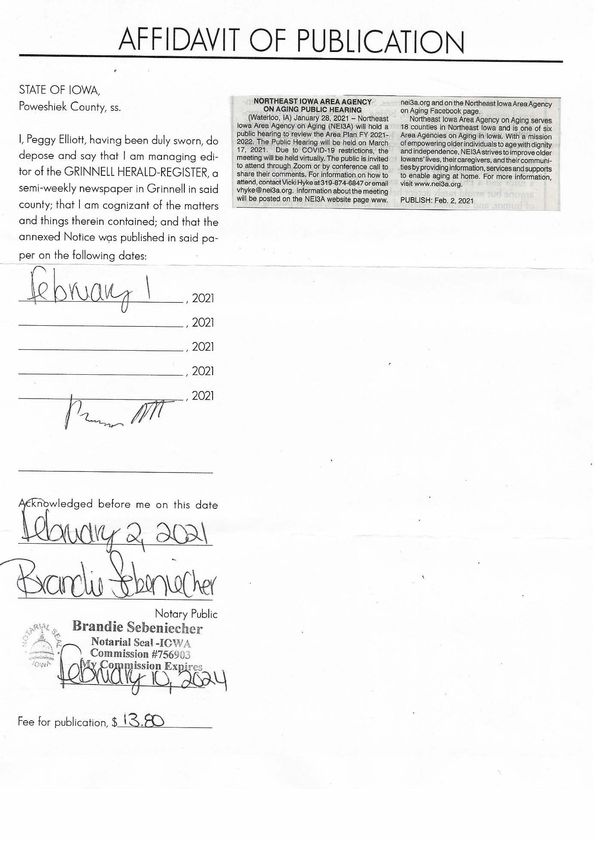 AFFIDAVIT OF PUBLICATION
STATE OF IOWA,
Poweshiek County, ss.
I, Peggy Elliott, having been duly sworn, do
depose and say that I am managing edi-
tor of the GRINNELL HERALD-REGISTER, a
semi-weekly newspaper in Grinnell in said
county; that I am cognizant of the matters
and things therein contained; and that the
annexed Notice was published in said pa-
per on the following dates:
February 1, 2021
, 2021
, 2021
, 2021
, 2021
Acknowledged before me on this date
February 2, 2021
Brandie Sebeniecher
Notary Public
NOTARIAL SEAL
IOWA
Brandie Sebeniecher
Notarial Seal -IOWA
Commission #756903
My Commission Expires
February 10, 2024
Fee for publication, $ 13.80
NORTHEAST IOWA AREA AGENCY
ON AGING PUBLIC HEARING
(Waterloo, IA) January 28, 2021 – Northeast
Iowa Area Agency on Aging (NEI3A) will hold a
public hearing to review the Area Plan FY 2021-
2022. The Public Hearing will be held on March
17, 2021. Due to COVID-19 restrictions, the
meeting will be held virtually. The public is invited
to attend through Zoom or by conference call to
share their comments. For information on how to
attend, contact Vicki Hyke at 319-874-6847 or email
vhyke@nei3a.org. information about the meeting
will be posted on the NEI3A website page www.
nei3a.org and on the Northeast Iowa Area Agency
on Aging Facebook page.
Northeast Iowa Area Agency on Aging serves
18 counties in Northeast Iowa and is one of six
Area Agencies on Aging in Iowa. With a mission
of empowering older individuals to age with dignity
and independence, NEI3A strives to improve older
Iowans' lives, their caregivers, and their communi-
ties by providing information, services and supports
to enable aging at home. For more information,
visit www.nei3a.org.
PUBLISH: Feb. 2, 2021